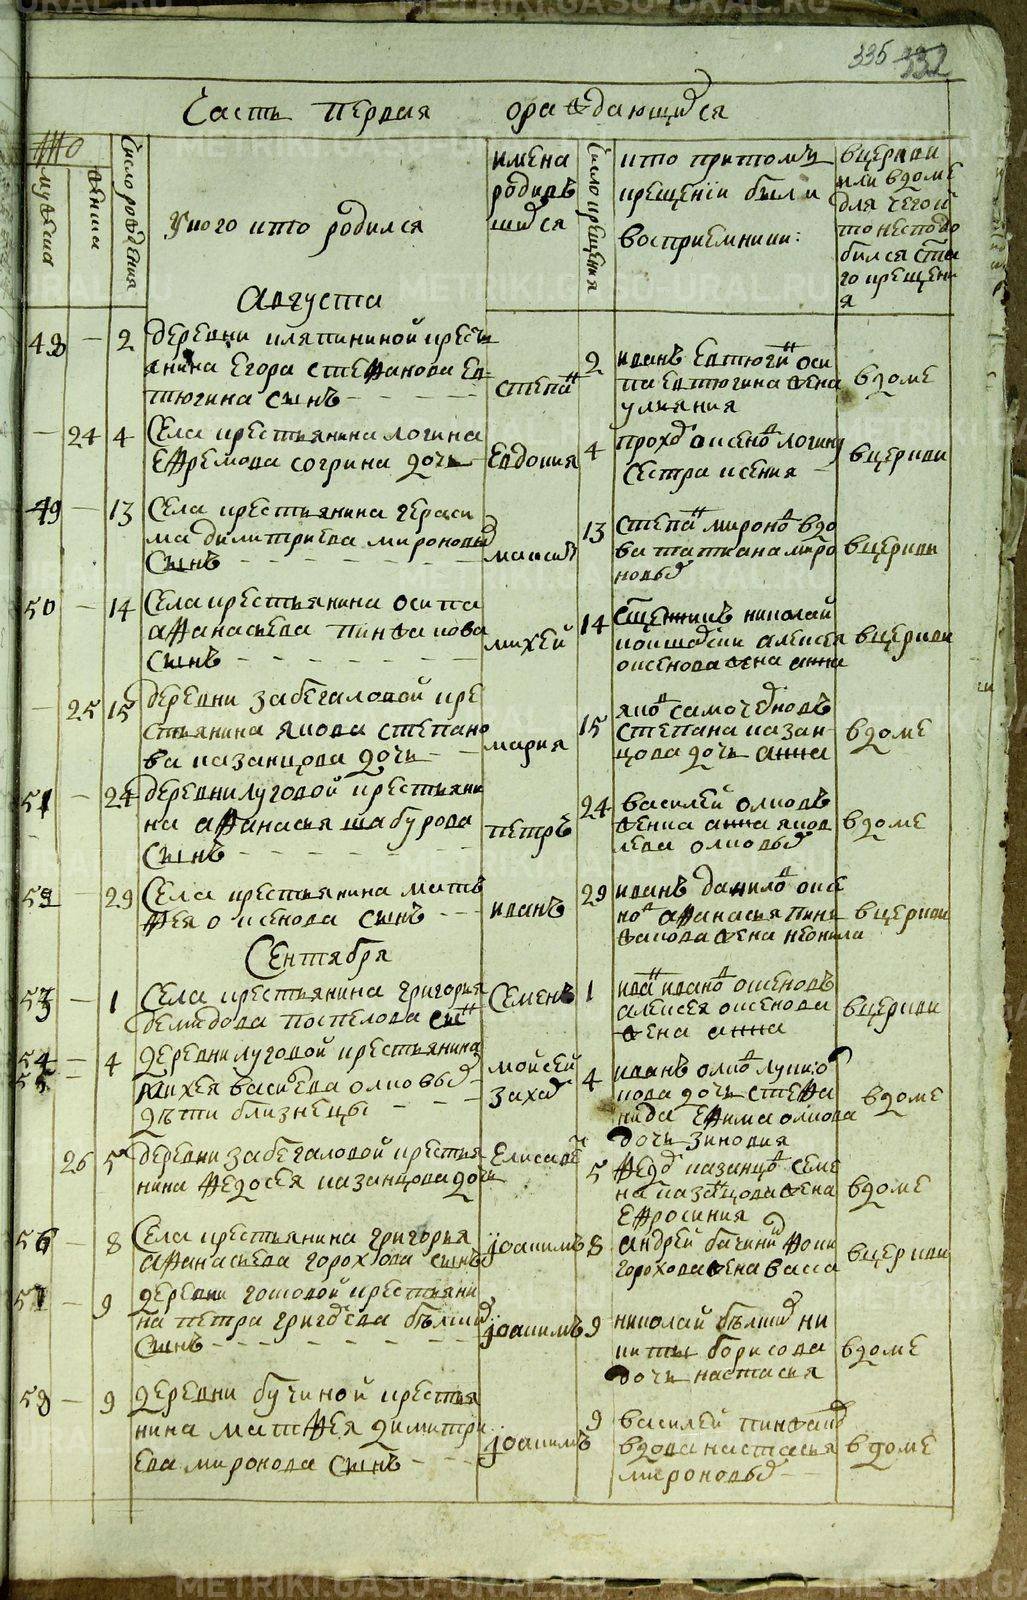 335 332
Часть первая о раждающихся
Число рождения
женска
у кого кто родился
имена
родив
шихся
Число крещения
кто при томъ
крещении были
восприемники:
в церкви
или в доме
для чего и
то не сподо
бился свта
го крещени
я
Августа
48 — 2 деревни кляпининой кресть
янина Егора Стефанова Ев
тюгина сынъ
степан
2
иванъ Евтюгин оси
па Евтюгина жена
улияния
в доме
— 24 4 Села крестьянина логина
Ефремова согрина дочь
Евдокия
4
прохор аксенов логину
сестра ксения
в церкви
49 — 13 Села крестьянина гераси
ма димитриева мироновых
сынъ
максим
13
степан миронов вдо
ва татиана миро
новых
в церкви
50 — 14 Села крестьянина осипа
афанасьева пинжакова
сынъ
михей
14
Сщенникъ николай
алексея
аксенова жена анна
в церкви
— 25 15 деревни забегаловой кре
стьянина якова степано
ва казанцова дочь
мария
15
яков самочерновъ
степана казан
цова дочь анна
в доме
51 — 24 деревни луговой крестьяни
на афанасья шабурова
сынъ
петръ
24
василей олковъ
женка анна яков
лева олковых
в доме
52 — 29 Села крестьянина мать
фея оксенова сынъ
иванъ
29
иванъ данилов оксе
нов афанасья пин
жакова жена неонила
в церкви
Сентября
53 — 1 Села крестьянина григорья
демидова поспелова сын
Семенъ
1
иван иванов оксеновъ
алексея оксенова
жена анна
в церкви
54 —
55 —
4 деревни луговой крестьянина
михея васильева олковых
дети близнецы
мойсей
захар
4
иванъ олков луки о
лкова дочь стефа
нида Ефима олкова
дочь зиновия
в доме
26 5 деревни забегаловой крестья
нина федосея казанцова дочь
Елисавет
5
федор казанцов семе
на казанцова жена
Ефросиния
в доме
56 — 8 Села крестьянина григорья
афанасьева горохова сынъ
иоакимъ
8
андрей бачинин фоки
горохова жена васса
в церкви
57 — 9 деревни гоковой крестьяни
на петра григорьева белых
сынъ
иоакимъ
9
николай белых ни
киты борисова
дочь настасья
в доме
58 — 9 деревни бучиной крестья
нина матфея димитри
ева миронова сынъ
иоакимъ
9
василей пинжаков
вдова настасья
мироновых
в доме
METRIKI.GASO-URAL.RU